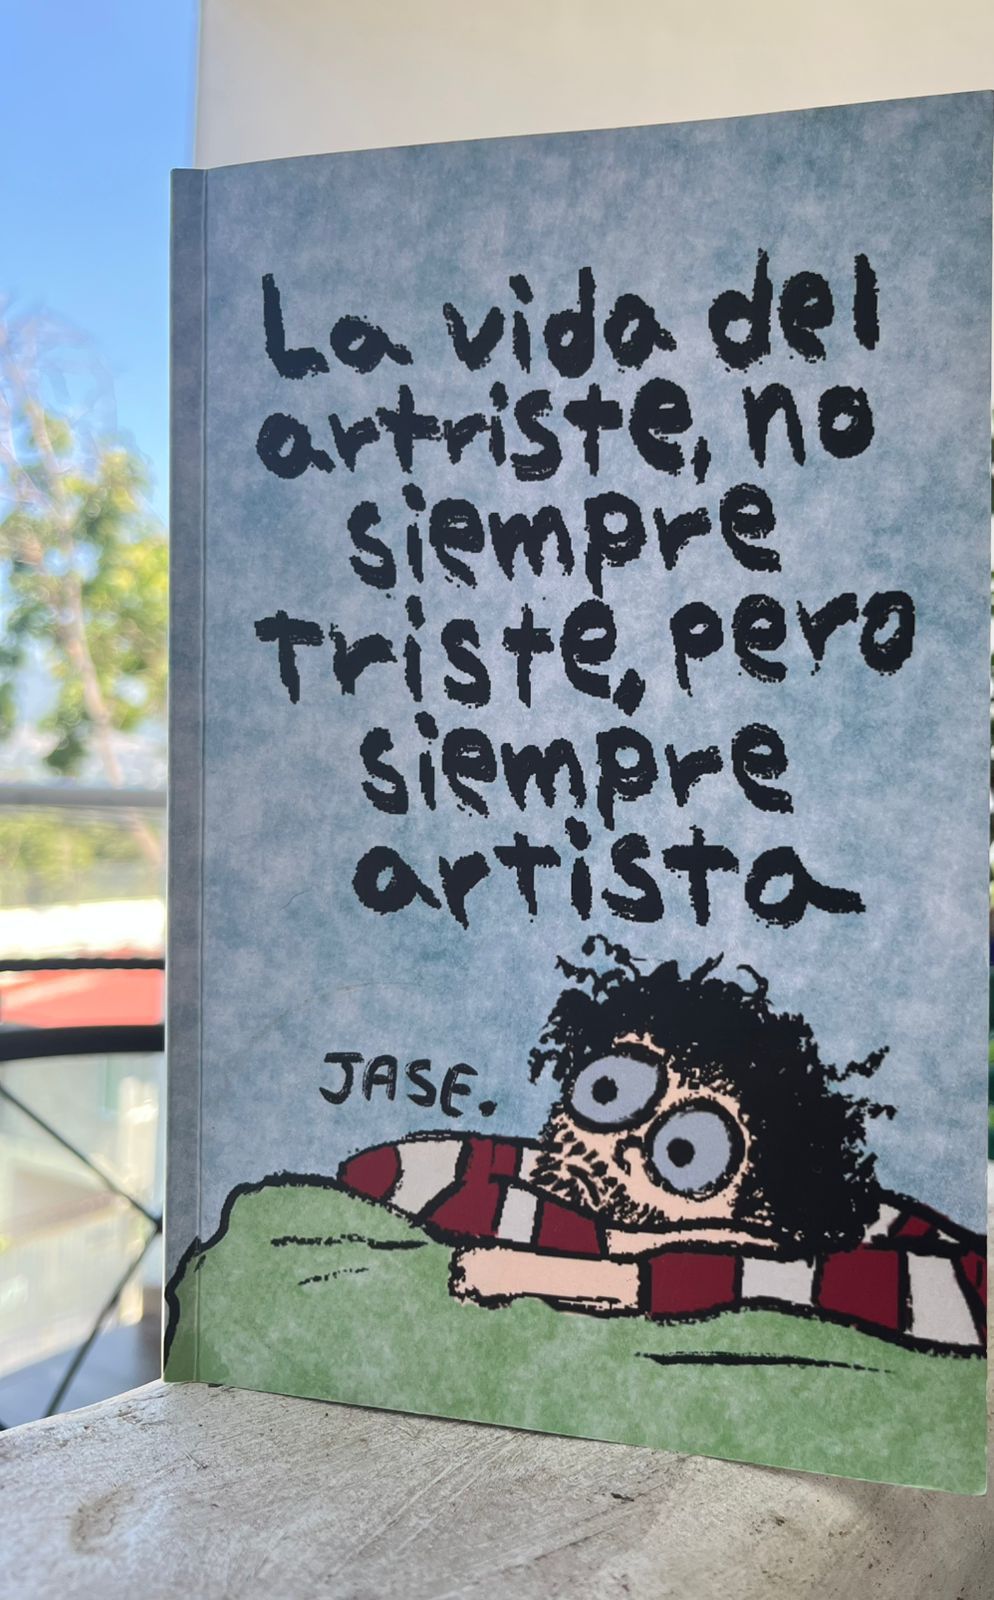 La vida del
artriste, no
siempre
Triste, pero
siempre
artista
JASE.